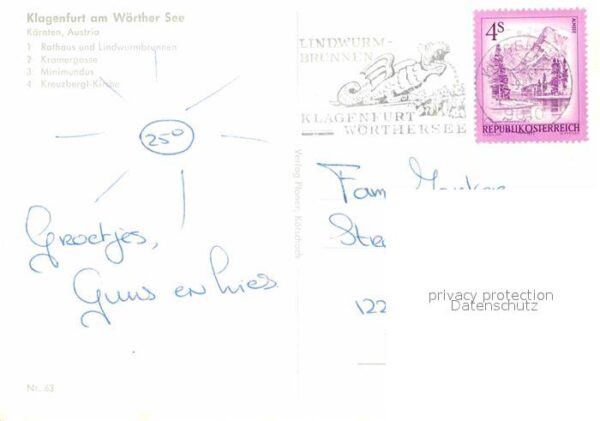 Klagenfurt am Wörther See
Kärnten, Austria
1 Rathaus und Lindwurmbrunnen
2 Kramergasse
3 Minimundus
4 Kreuzbergl-Kirche
25°
Groetjes,
Guus en Mies.
Nr. 63
Verlag Planer, Kötschach
LINDWURM-
BRUNNEN
KLAGENFURT
WÖRTHERSEE
4S
ALMSEE
REPUBLIK ÖSTERREICH
Fam
Stra
122
privacy protection
Datenschutz